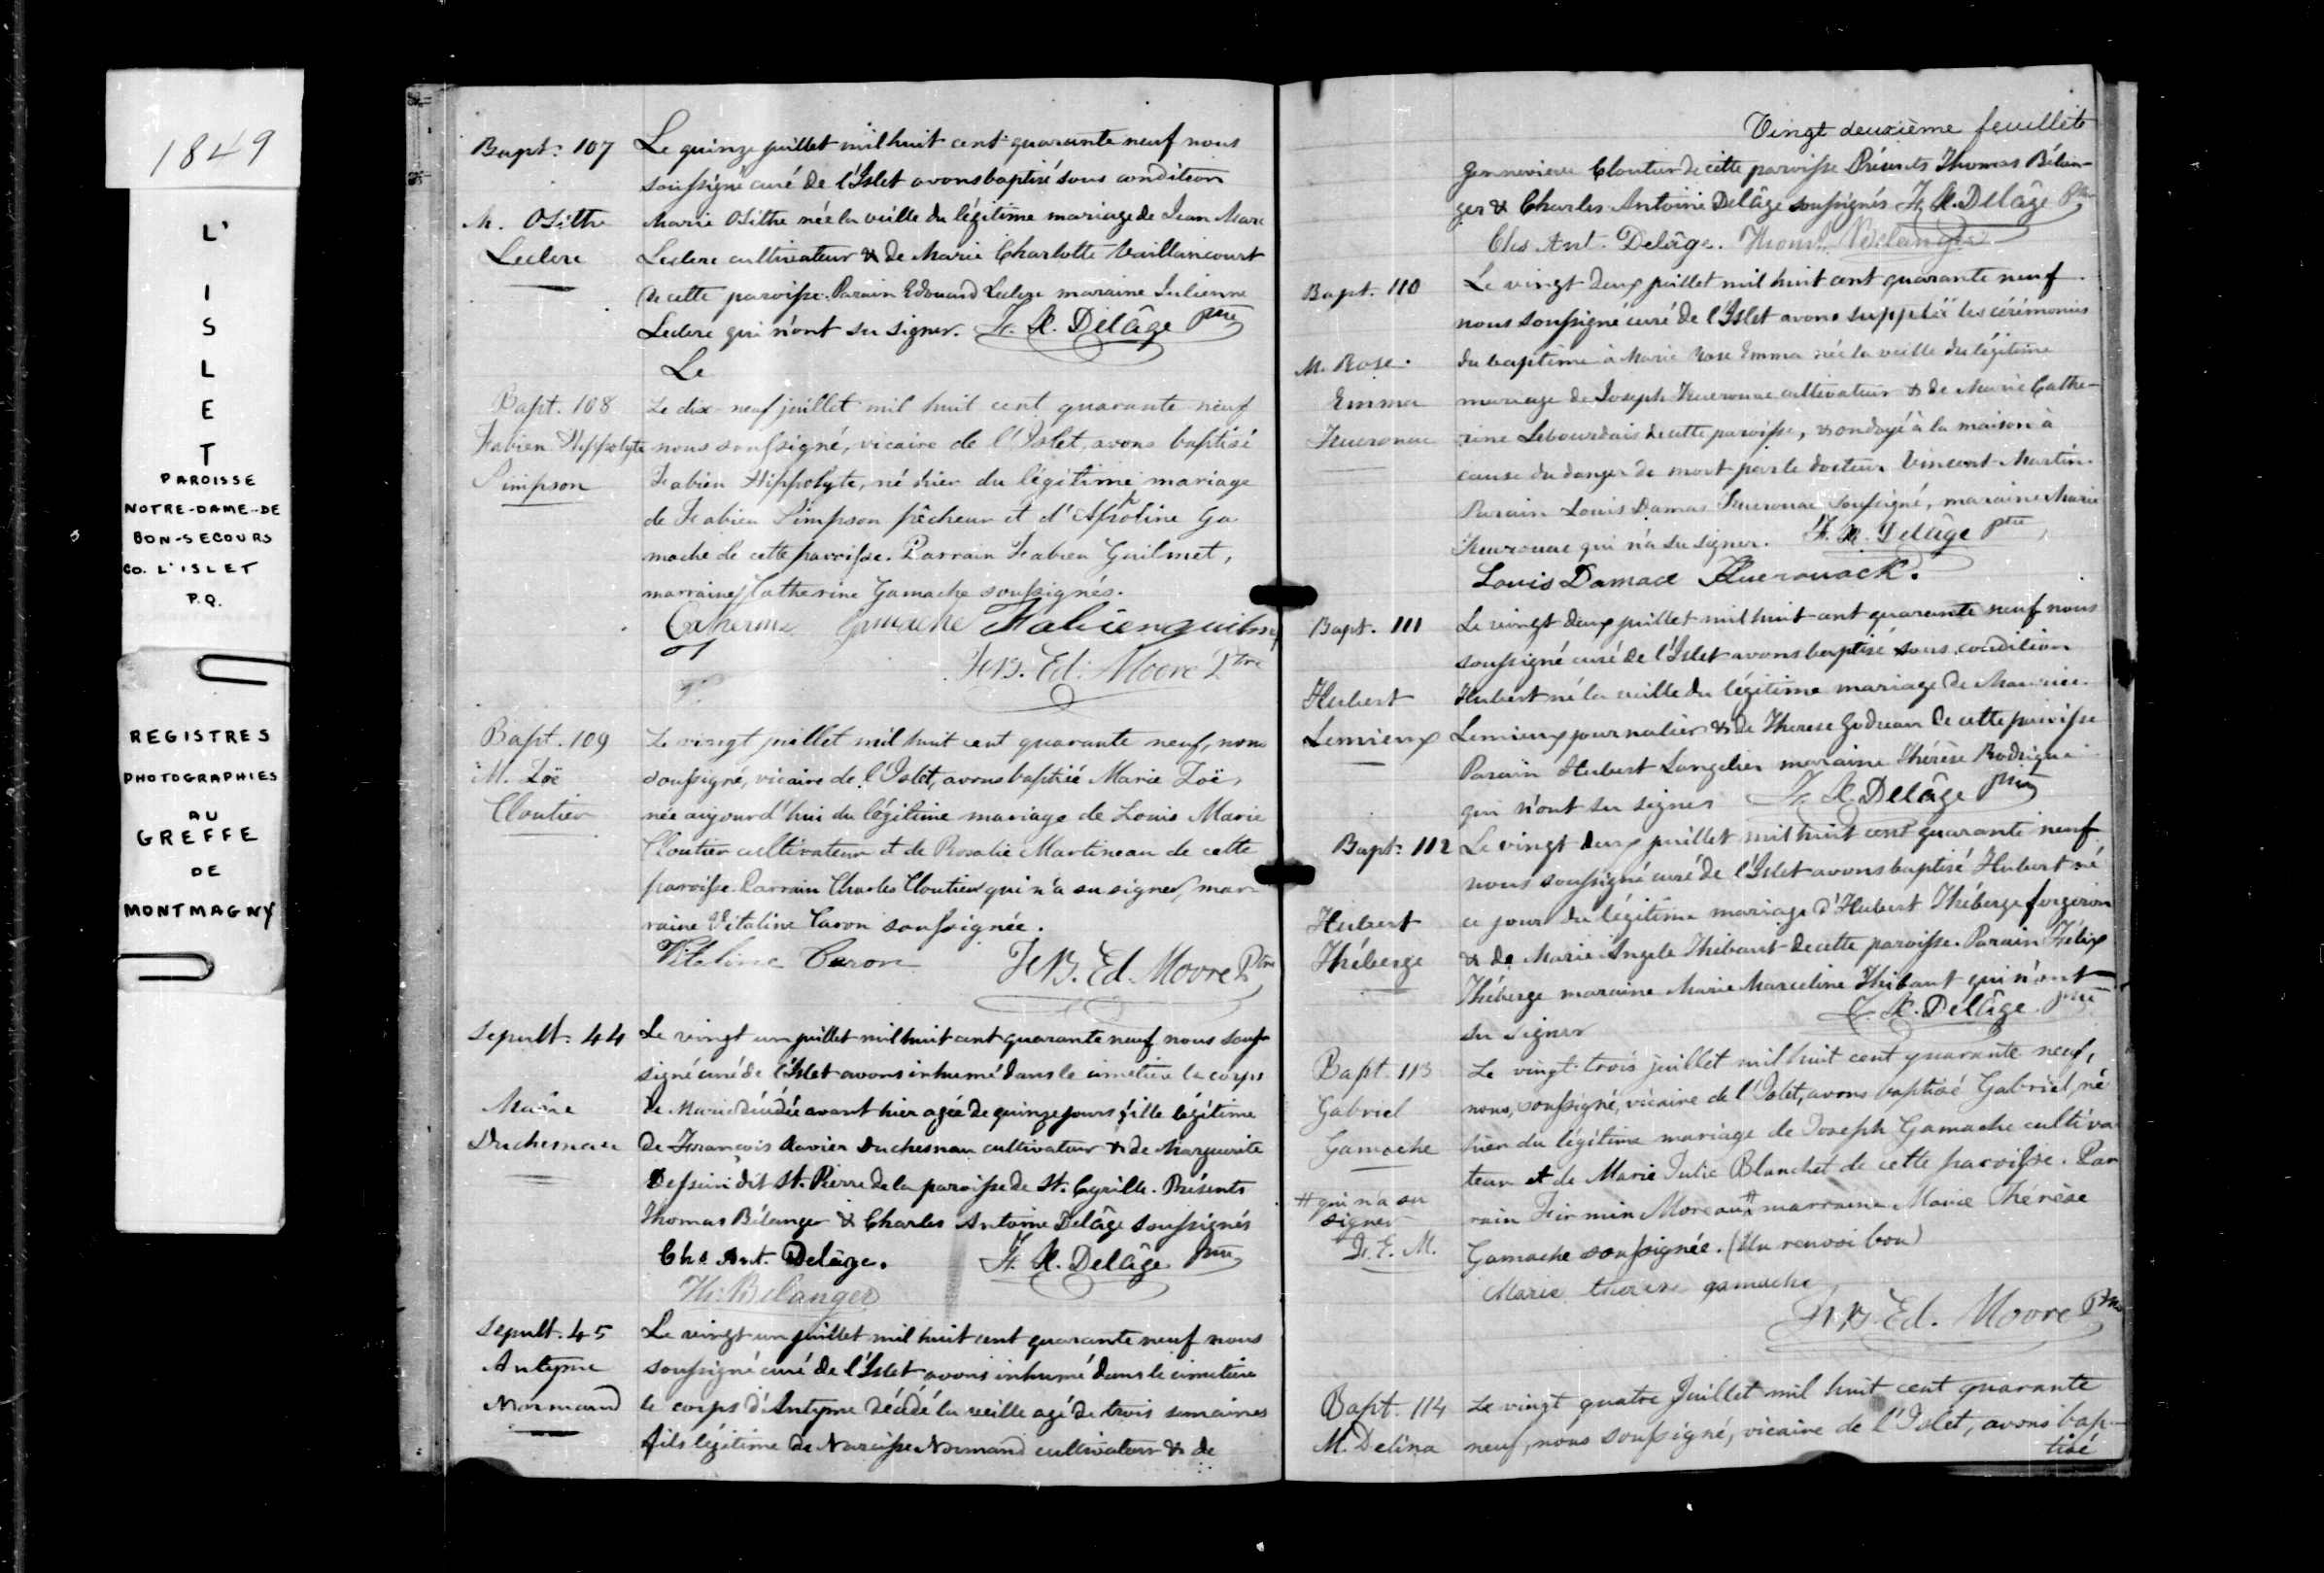 1849
L'
I
S
L
E
T
PAROISSE
NOTRE-DAME-DE
BON-SECOURS
CO. L'ISLET
P.Q.
REGISTRES
PHOTOGRAPHIES
AU
GREFFE
DE
MONTMAGNY
Bapt: 107
M. Osithe
Leclerc
Le quinze juillet mil huit cent quarante neuf nous
soussigné curé de l'Islet avons baptisé sous condition
Marie Osithe née la veille du légitime mariage de Jean Marc
Leclerc cultivateur & de Marie Charlotte Vaillancourt
de cette paroisse. Parain Edouard Leclerc maraine Julienne
Leclerc qui n'ont su signer. F. X. Delâge Ptre
Le
Bapt. 108
Fabien Hippolyte
Simpson
Le dix-neuf juillet mil huit cent quarante neuf
nous soussigné, vicaire de l'Islet, avons baptisé
Fabien Hippolyte, né hier du légitime mariage
de Fabien Simpson pêcheur et d'Apholine Ga
mache de cette paroisse. Parrain Fabien Guilmet,
marraine Catherine Gamache soussignés.
Catherine Gamache Fabien guilmet
Fr. B. Ed. Moore Ptre
Bapt. 109
M. Zoë
Cloutier
Le vingt juillet mil huit cent quarante neuf, nous
soussigné, vicaire de l'Islet, avons baptisé Marie Zoë,
née aujourd'hui du légitime mariage de Louis Marie
Cloutier cultivateur et de Rosalie Martineau de cette
paroisse. Parrain Charles Cloutier qui n'a su signer, mar
raine Vitaline Caron soussignée.
Vitaline Caron Fr. B. Ed. Moore Ptre
Sepult: 44
Marie
Duchesnau
Le vingt un juillet mil huit cent quarante neuf nous sous
signé curé de l'Islet avons inhumé dans le cimetière le corps
de Marie décédée avant hier agée de quinze jours fille légitime
de François Xavier Duchesnau cultivateur & de Marguerite
Dessein dit St. Pierre de la paroisse de St. Cyrille. Présents
Thomas Bélanger & Charles Antoine Delâge soussignés
Chs Ant. Delâge. F. X. Delâge Ptre
Th: Belanger
Sepult. 45
Antyme
Normand
Le vingt un juillet mil huit cent quarante neuf nous
soussigné curé de l'Islet avons inhumé dans le cimetière
le corps d'Antyme décédé la veille agé de trois semaines
fils légitime de Narcisse Normand cultivateur & de
Vingt deuxième feuillete
Genneviève Cloutier de cette paroisse Présents Thomas Bélan-
ger & Charles Antoine Delâge soussignés F. X. Delâge Ptre
Chs Ant. Delâge. Thomas Belanger
Bapt. 110
M. Rose.
Emma
Kuerouac
Le vingt deux juillet mil huit cent quarante neuf
nous soussigné curé de l'Islet avons suppléé les cérémonies
du baptême à Marie Rose Emma née la veille du légitime
mariage de Joseph Kuerouac cultivateur & de Marie Cathe-
rine Lebourdais de cette paroisse, & ondoyé à la maison à
cause du danger de mort par le docteur Vincent Martin.
Parain Louis Damas Kuerouac soussigné, maraine Marie
Kuerouac qui n'a su signer. F. X. Delâge Ptre
Louis Damace Kuerouack.
Bapt. 111
Hubert
Lemieux
Le vingt deux juillet mil huit cent quarante neuf nous
soussigné curé de l'Islet avons baptisé sous condition
Hubert né la veille du légitime mariage de Maurice
Lemieux journalier & de Therese Godreau de cette paroisse
Parain Hubert Langelier maraine Thérèse Rodrigue
qui n'ont su signer F. X. Delâge Ptre
Bapt: 112
Hubert
Théberge
Le vingt deux juillet mil huit cent quarante neuf
nous soussigné curé de l'Islet avons baptisé Hubert né
ce jour du légitime mariage d'Hubert Théberge forgeron
& de Marie Angele Thibaut de cette paroisse. Parain Félix
Théberge maraine Marie Marceline Thibaut qui n'ont
su signer F. X. Delâge Ptre
Bapt. 113
Gabriel
Gamache
# qui n'a su
signer
F. E. M.
Le vingt-trois juillet mil huit cent quarante neuf,
nous, soussigné, vicaire de l'Islet, avons baptisé Gabriel, né
hier du légitime mariage de Joseph Gamache cultiva
teur et de Marie Julie Blanchet de cette paroisse. Par
rain Firmin Moreau # marraine Marie Thérèse
Gamache soussignée. (Un renvoi bon)
Marie therese gamache
Fr. B. Ed. Moore Ptre
Bapt. 114
M. Delina
Le vingt quatre Juillet mil huit cent quarante
neuf, nous soussigné, vicaire de l'Islet, avons bap-
tisé